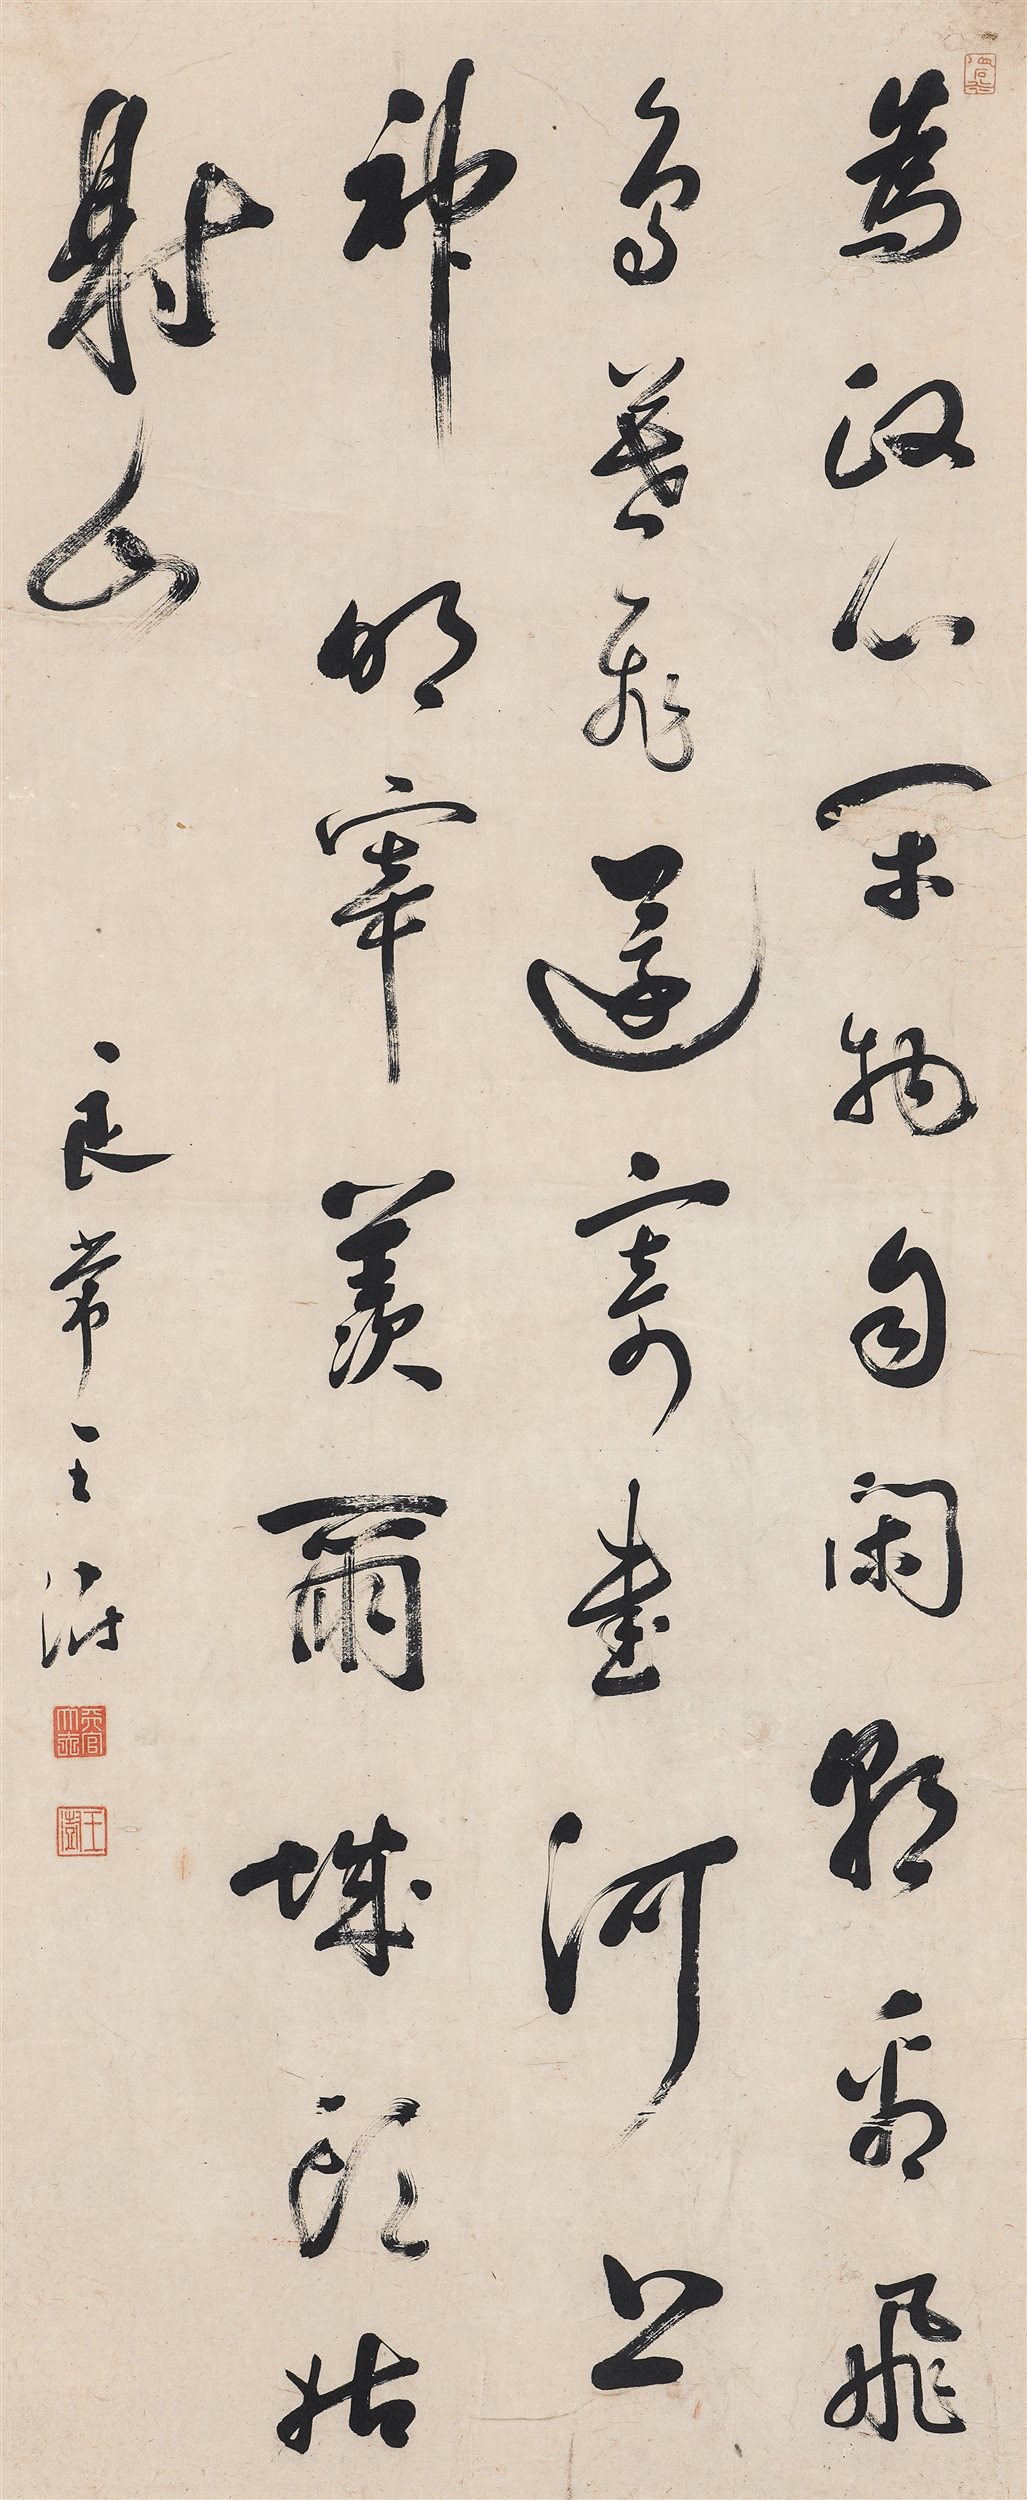 為政心閑物自閑朝看飛
鳥暮飛還寄書河上
神明宰羨爾城頭姑
射山
良常王澍
天官大夫
王澍